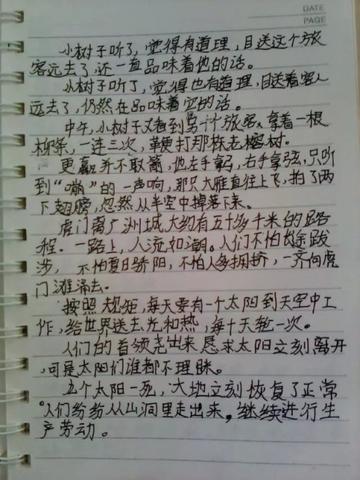 DATE
PAGE
小树子听了，觉得有道理，目送这个旅
客远去了，还一直品味着他的话。
小树子听了，觉得也有道理，目送着客人
远去了，仍然在品味着它的话。
中午，小树子又看到另一个旅客，拿着一根
柳条，一连三次，鞭打那棵老榕树。
更羸并不取箭，他左手拿弓，右手拿弦，只听
到"嘣"的一声响，那只大雁直往上飞，拍了两
下翅膀，忽然从半空中掉落下来。
虎门离了洲城大约有五十多千米的路
程。一路上，人流如潮。人们不怕长途跋
涉，不怕夏日骄阳，不怕人多拥挤，一齐向虎
门滩涌去。
按照规矩，每天要有一个太阳到天空中工
作，给世界送去光和热，每十天轮一次。
人们的首领尧出来恳求太阳立刻离开
，可是太阳们谁都不理睬。
五个太阳一死，大地立刻恢复了正常
。人们纷纷从山洞里走出来，继续进行生
产劳动。